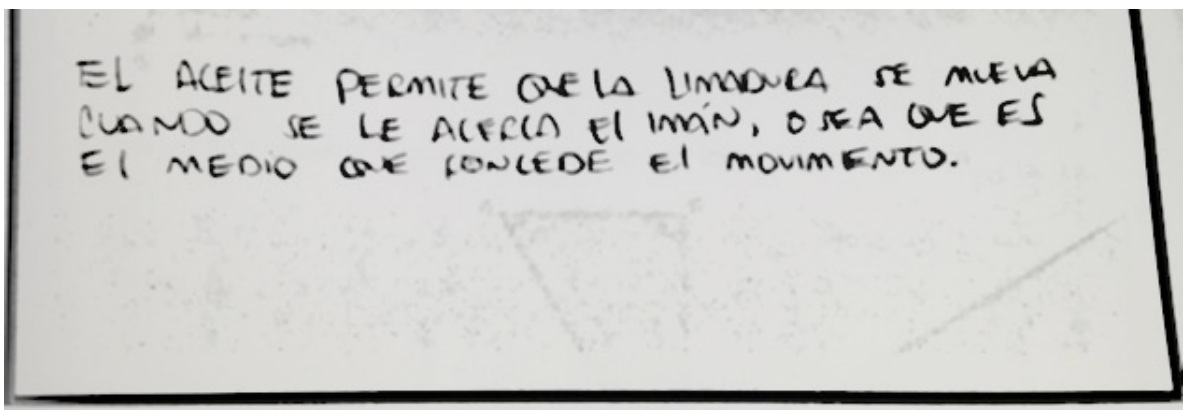 EL ACEITE PERMITE QUE LA LIMADURA SE MUEVA
CUANDO SE LE ACERCA El IMÁN, O SEA QUE ES
El MEDIO QUE CONCEDE El MOVIMENTO.